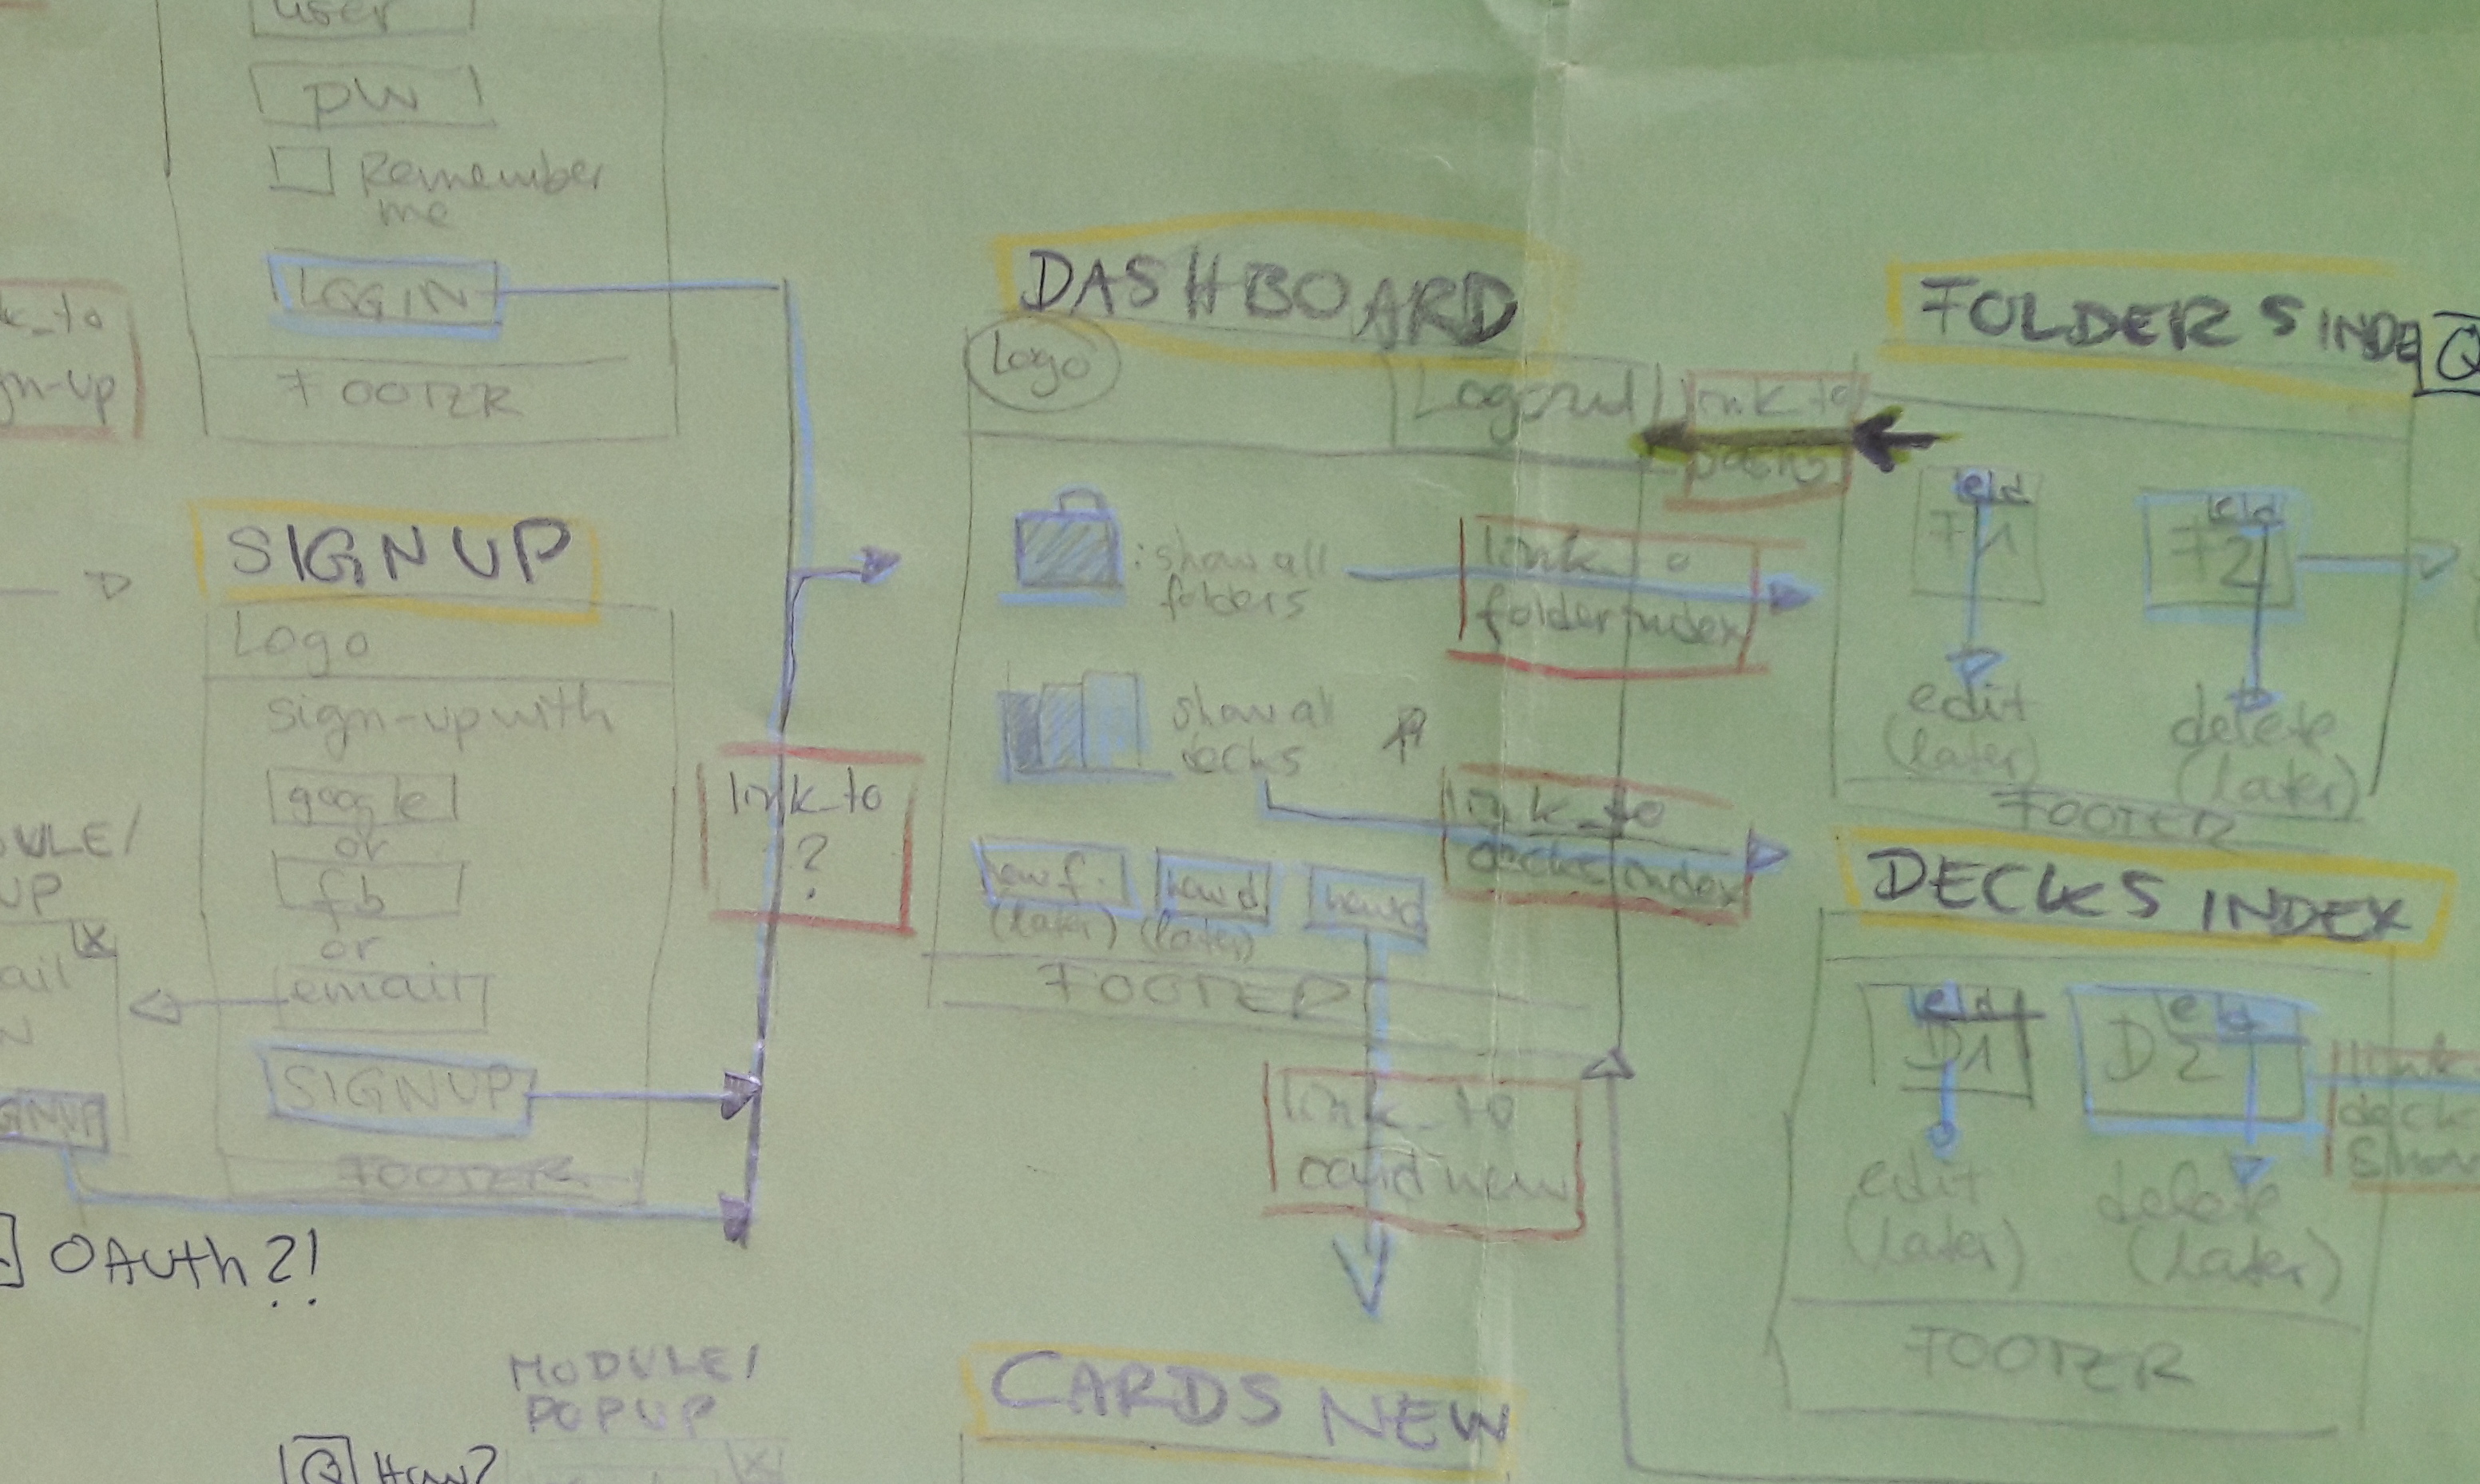 user
pw
Remember
me
LOGIN
FOOTER
k_to
gn-up
SIGN UP
Logo
sign-up with
google
or
fb
or
email
SIGNUP
FOOTER
link_to
?
OAuth?!
MODULE/
POPUP
Q How?
DASHBOARD
Logo
Logout
link_to
: show all
folders
link_to
folder index
show all
decks
link_to
decks index
new f.
new d.
new c
(later) (later)
FOOTER
link_to
card new
CARDS NEW
FOLDERS INDE
Q
e d
F1
e d
F2
edit
(later)
delete
(later)
FOOTER
DECKS INDEX
e d
D1
e d
D2
link
deck
Show
edit
(later)
delete
(later)
FOOTER
ULE/
UP
X
ail
N
GNUP